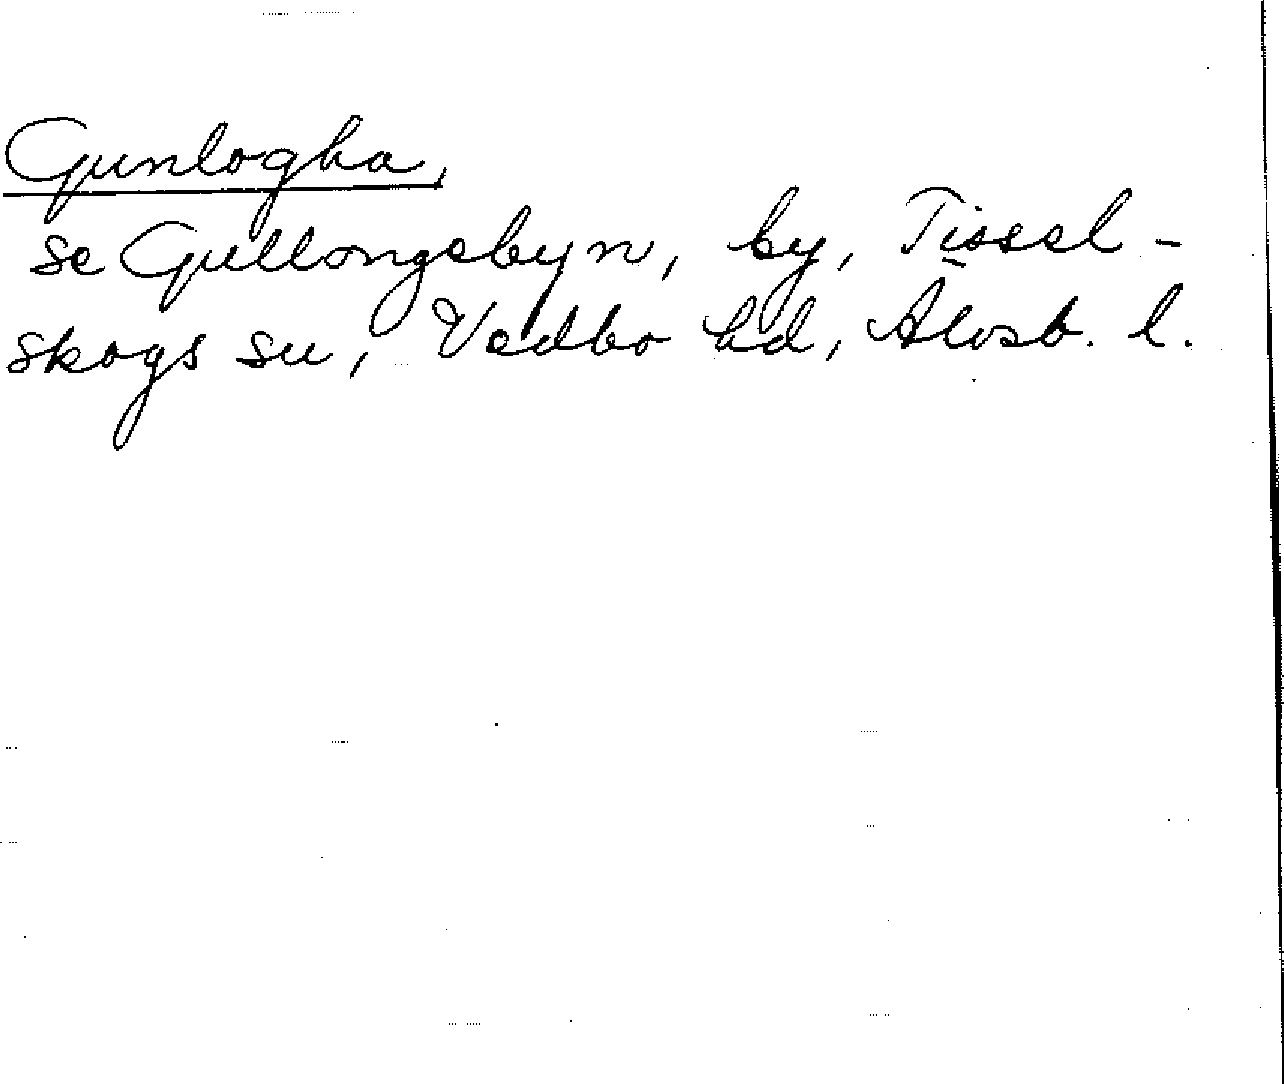 Gunlogha,
se Gullongsbyn, by, Tissel-
skogs sn, Vedbo hd, Älvsb. l.